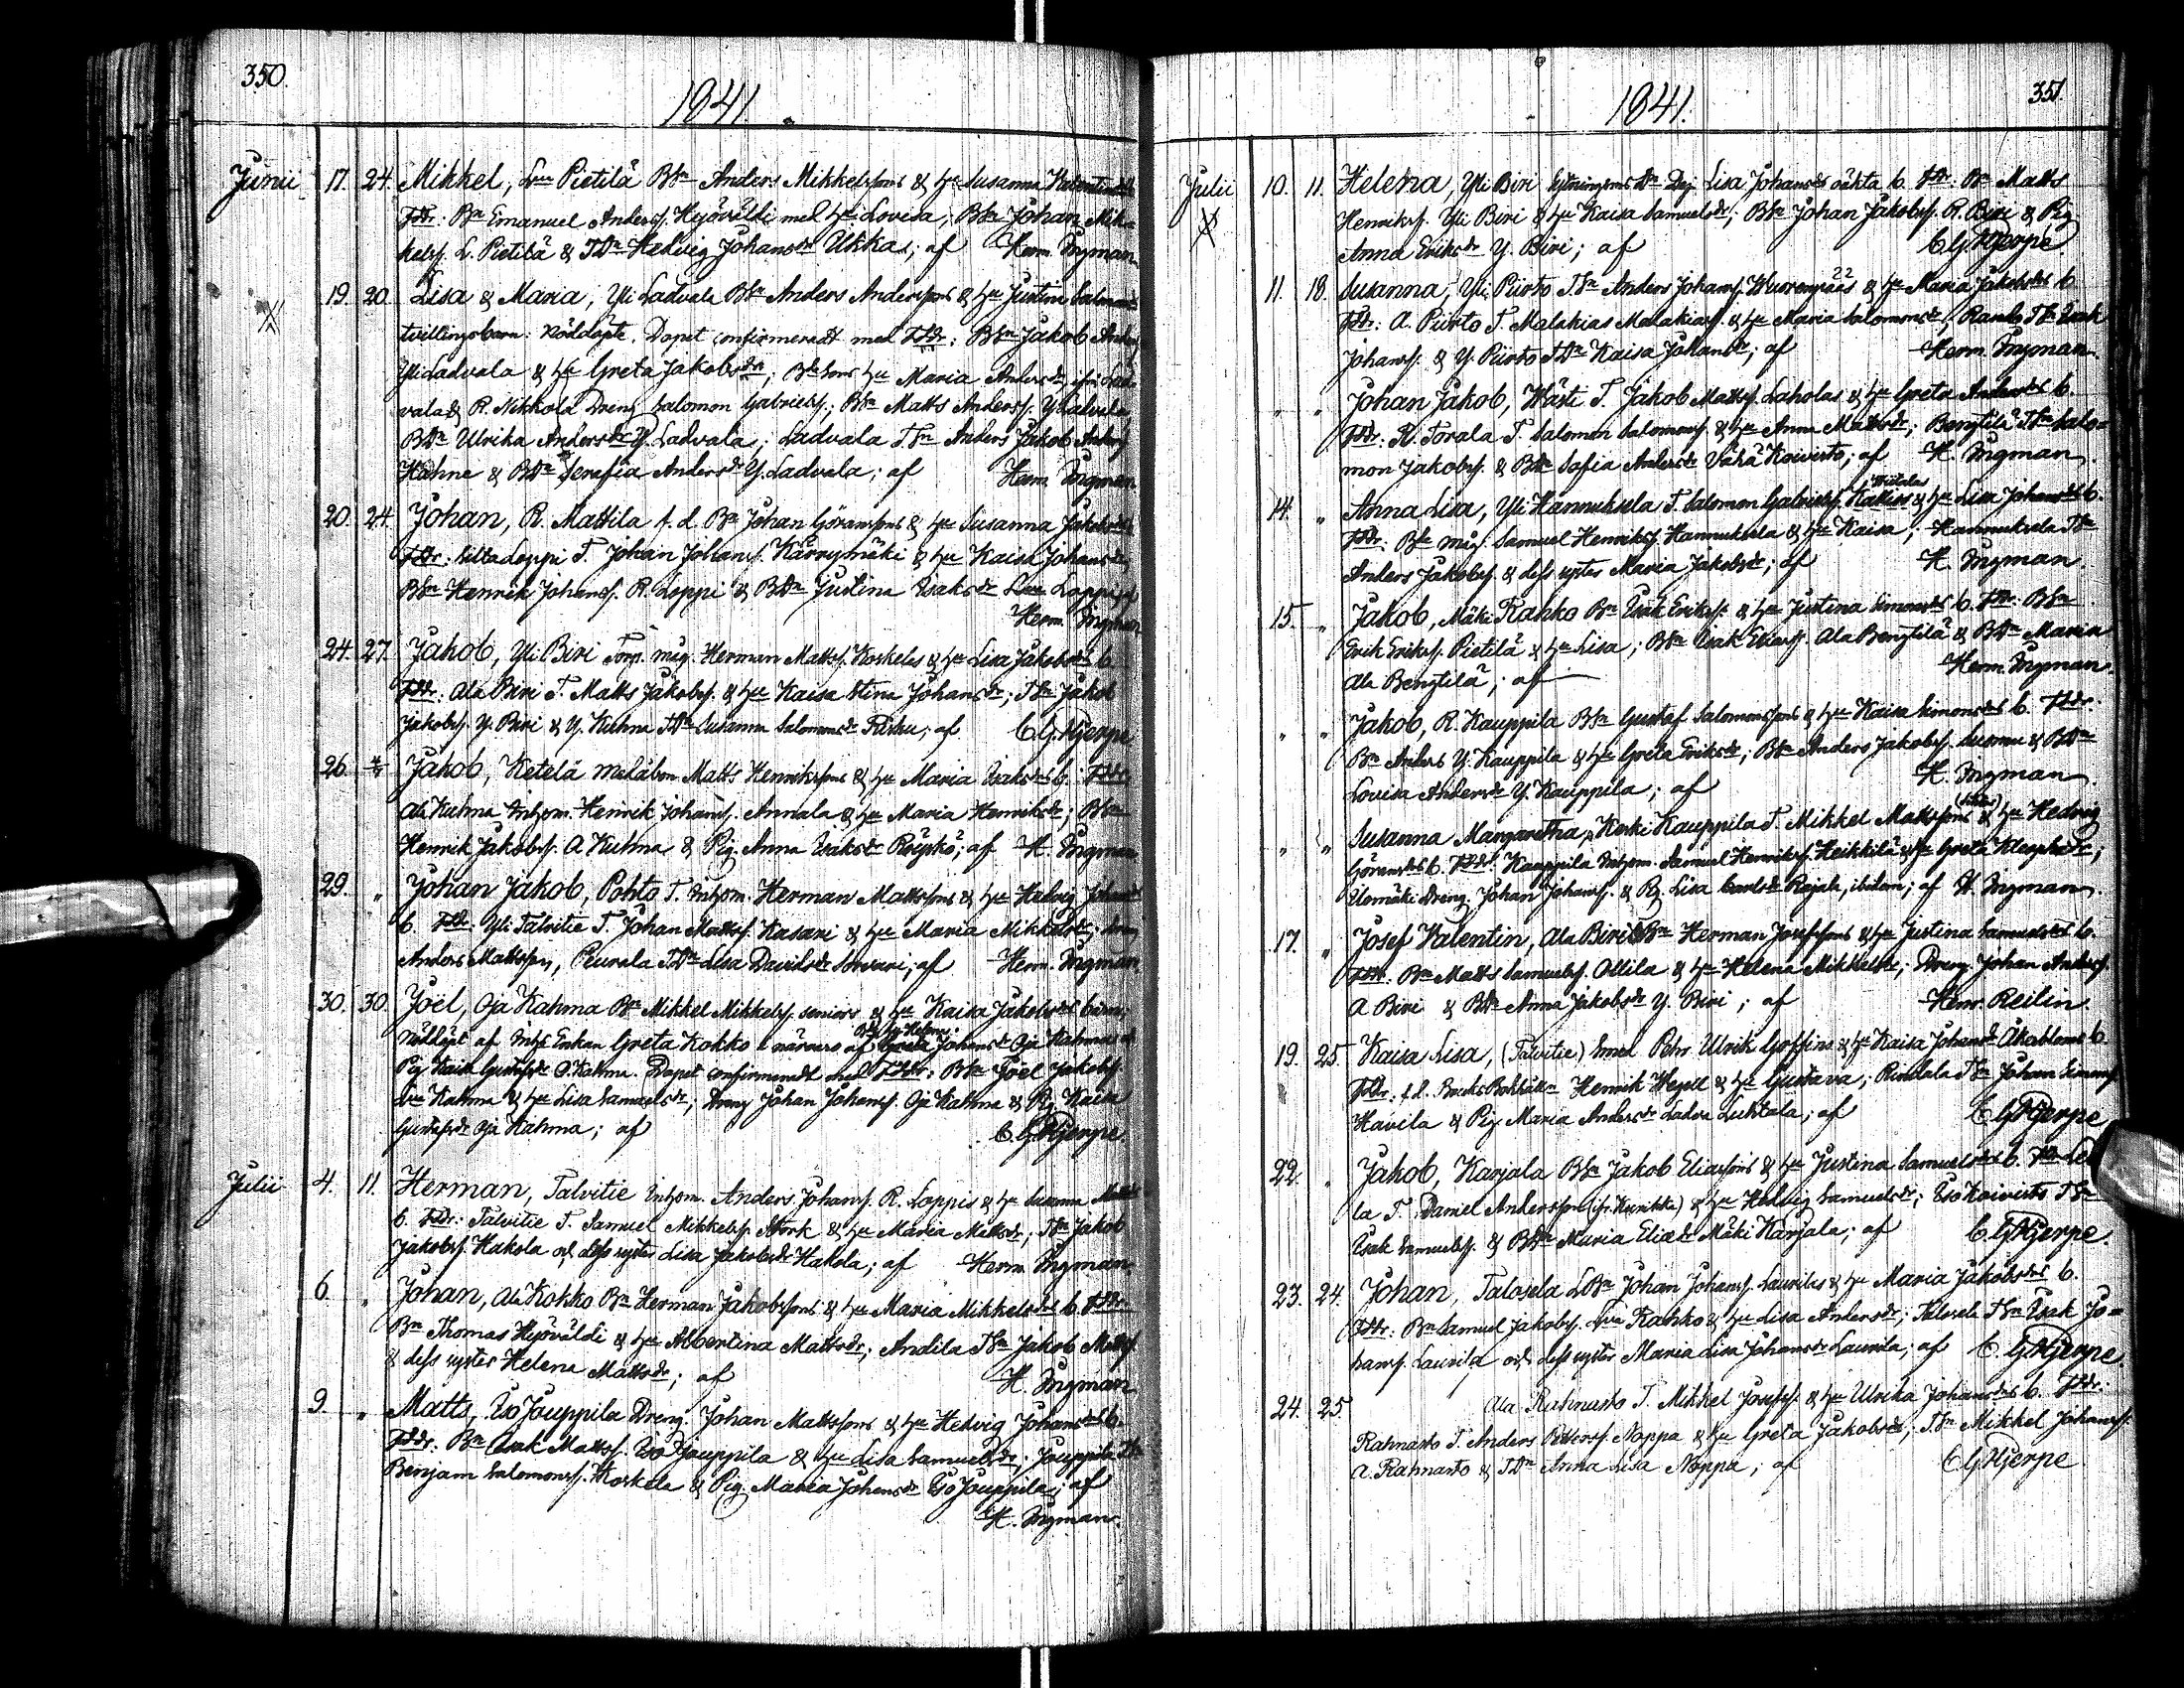 350.
1841.
Junii 17. 24. Mikkel, Lua Pietilä Bsn Anders Mikkelssons & hu Susanna Valentinsdr
Fddr: Bn Emanuel Anderss. Hyöväldi med hu Lovisa; Bsn Johan Mik-
kelss. L. Pietilä & TDr Hedvig Johansdr Ukka; af Herm. Ingman
19. 20. Lisa & Maria, Yli Ladvala Bsn Anders Anderssons & hu Justina Salomonsdr
tvillingsbarn: nöddöpte. Dopet confirmeradt med Fddr: Bsn Jakob Anderss
Yli Ladvala & hu Greta Jakobsdr; hu Maria Andersdr
vala & R. Nikkola Dreng Salomon Gabrielss.; Bsn Matts Anderss. Y Ladvala
BDr Ulrika Andersdr Y. Ladvala; Ladvala TSn Anders Jakob Anderss
& BDr Serafia Andersdr Y. Ladvala; af Herm. Ingman
20. 24. Johan, R. Mattila f. d. Bn Johan Göranssons & hu Susanna Jakobsdr
Fddr: T. Johan Johanss. Kärrymäki & hu Kaisa Johansdr
Bsn Henrik Johanss. R. Loppi & BDr Justina Isaksdr Lua Loppi; af
Herm. Ingman
24. 27. Jakob, Yli Biri Torp. måg. Herman Mattss. Koskelas & hu Lisa Jakobsdrs b.
Fddr: Ala Biri T. Matts Jakobss. & hu Kaisa Stina Johansdr; TSn Jakob
Jakobss. Y. Biri & Y. Kuhna TDr Susanna Salomonsdr; af C. G. Hjerpe
26. Jakob, Ketelä Matts Henrikssons & hu Maria Isaksdrs b. Fddr
Ala Kuhna Inhom. Henrik Johanss. Annala & hu Maria Henriksdr; Bsn
Henrik Jakobss. A Kuhna & Pig. Anna Isaksdr Röyskö; af H. Ingman
29. " Johan Jakob, Pohto T. Inhom. Herman Mattssons & hu Hedvig Johansdrs
b. Fddr: Yli Talvitie T. Johan Mattss. Kasari & hu Maria Mikkelsdr; Dreng
Anders Mattsson, Peurala TDr Lisa Davidsdr Sorvari; af Herm. Ingman
30. 30. Joel, Oja Kahma Bn Mikkel Mikkelss. seniors & hu Kaisa Jakobsdrs barn;
Nöddöpt af Enkan Greta Kokko i närvaro af Johansdr Oja Kahma och
Pig Kaisa Gustafsdr O. Kahma. Dopet confirmeradt med Fddr: Bsn Joel Jakobss.
Lua Kahma & hu Lisa Samuelsdr; Dreng Johan Johanss. Oja Kahma & Pig. Kaisa
Gustafsdr Oja Kahma; af C. G. Hjerpe
Julii 4. 11. Herman, Talvitie Inhom. Anders Johanss. R. Loppis & hu Susanna Mattsdrs
b. Fddr: Talvitie T. Samuel Mikkelss. Stork & hu Maria Mattsdr; TSn Jakob
Jakobss. Hakola och dess syster Lisa Jakobsdr Hakola; af Herm. Ingman
6. " Johan, Ala Kokko Bn Herman Jakobssons & hu Maria Mikkelsdrs b. Fddr:
Bn Thomas Hyöväldi & hu Albertina Mattsdr; Andila TSn Jakob Mattss.
& dess syster Helena Mattsdr; af H. Ingman
9. " Matts, Iso Jouppila Dreng. Johan Mattssons & hu Hedvig Johansdrs b.
Fddr: Bn Isak Mattss. Iso Jouppila & hu Lisa Samuelsdr; Jouppila TSn
Benjam Salomonss. Koskela & Pig. Maria Johansdr Iso Jouppila; af
H. Ingman.
1841.
351.
Julii 10. 11. Helena, Yli Biri Dr Pig Lisa Johansdrs oäkta b. Fddr: Bn Matts
Henrikss. Yli Biri & hu Kaisa Samuelsdr; Bsn Johan Jakobss. R. Biri & Pig
Anna Eriksdr Y. Biri; af C. G. Hjerpe
11. 18. Susanna, Yli Piirto TSn Anders Johanss. & hu Maria Jakobsdrs b
Fddr: A. Piirto T. Malakias Malakiass. & hu Maria Salomonsdr; TSn Isak
Johanss. & Y. Piirto TDr Kaisa Johansdr; af Herm. Ingman.
" " Johan Jakob, Wästi T. Jakob Mattss. Laholas & hu Greta Andersdrs b.
Fddr: R. Torala T. Salomon Salomonss. & hu Anna Mattsdr; Bengtilä TSn Salo-
mon Jakobss. & BDr Sofia Andersdr Vähä Koivisto; af H. Ingman
14. " Anna Lisa, Yli Hannuksela T. Salomon Gabrielss. & hu Lisa Johansdrs b.
Fddr: Bde måg. Samuel Henrikss. Hannuksela & hu Kaisa; Hannuksela TSn
Anders Jakobss. & dess syster Maria Jakobsdr; af H. Ingman
15. " Jakob, Mäki Rahko Bn Isak Erikss. & hu Justina Simonsdrs b. Fddr: Bsn
Erik Erikss. Pietilä & hu Lisa; Bsn Isak Eliass. Ala Bengtilä & BDr Maria
Ala Bengtilä; af Herm. Ingman.
" " Jakob, R. Kauppila Bsn Gustaf Salomonssons & hu Kaisa Simonsdrs b. Fddr:
Bn Anders Y. Kauppila & hu Greta Eriksdr; Bsn Anders Jakobss. Luoma & BDr
Lovisa Andersdr Y. Kauppila; af H. Ingman
" " Susanna Margaretha, Keski Kauppila T. Mikkel Mattssons & hu Hedvig
Göransdrs b. Fddr: Kauppila Inhom. Samuel Henrikss. Heikkilä & hu Greta;
Ulomäki Dreng. Johan Johanss. & Pig. Lisa Carlsdr Rajala, ibidem; af H. Ingman
17. " Josef Valentin, Ala Biri Bn Herman Josefssons & hu Justina Samuelsdrs b.
Fddr: Bn Matts Samuelss. Ollila & hu Helena Mikkelsdr; Dreng. Johan Anderss.
A Biri & BDr Anna Jakobsdr Y. Biri; af Henr. Reilin.
19. 25. Kaisa Lisa, (Talvitie) Smed Pehr Ulrik Goffins & hu Kaisa Johansdr Åkerbloms b.
Fddr: f. d. Henrik Hegell & hu Gustava; Rintala TSn Johan Simonss.
Havila & Pig Maria Andersdr Ladva Luhtala; af C. G. Hjerpe
22. " Jakob, Karjala Bsn Jakob Eliassons & hu Justina Samuelsdrs b. Fddr:
la T. Daniel Andersson & hu Hedvig Samuelsdr; Iso Koivisto TSn
Isak Samuelss. & BDr Maria Eliædr Mäki Karjala; af C. G. Hjerpe
23. 24. Johan, Talosela LBn Johan Johanss. Laurilas & hu Maria Jakobsdrs b.
Fddr: Bn Samuel Jakobss. Lua Rahko & hu Lisa Andersdr; TSn Isak Jo-
hanss. Laurila, och dess syster Maria Lisa Johansdr Laurila; af C. G. Hjerpe
24. 25. Ala Rahnasto T. Mikkel Josefss. & hu Ulrika Johansdrs b. Fddr:
Rahnasto T. Anders Petterss. Noppa & hu Greta Jakobsdr; TSn Mikkel Johanss.
A. Rahnasto & TDr Anna Lisa Noppa; af C G Hjerpe